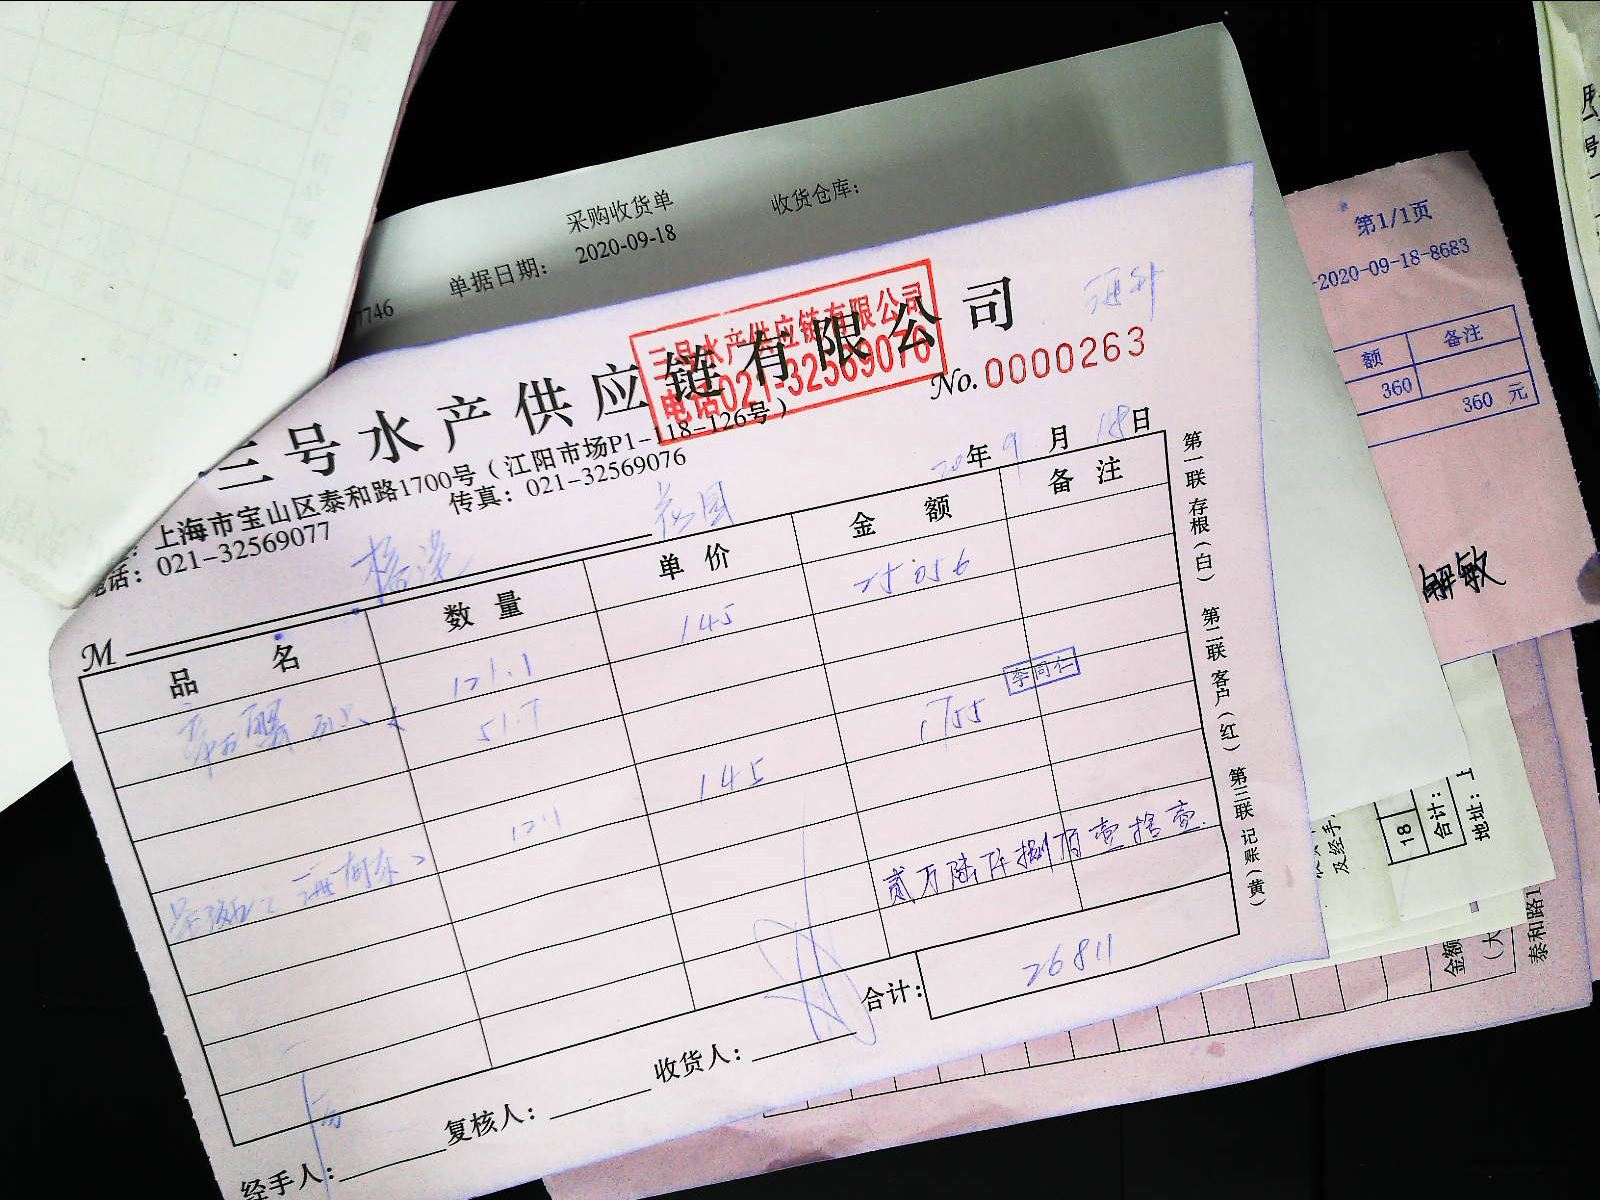 采购收货单
收货仓库:
7746
单据日期:
2020-09-18
三号水产供应链有限公司
三号水产供应链有限公司
电话021-32569076
No.0000263
上海市宝山区泰和路1700号(江阳市场P1-118-126号)
电话:021-32569077
传真:021-32569076
20年9月18日
花园
M
品名 数量 单价 金额 备注
121.1 145 25056
51.7
李同仁
12.1 145 1755
贰万陆仟捌百壹拾壹
合计: 26811
经手人: 复核人: 收货人:
第一联存根(白) 第二联客户(红) 第三联记账(黄)
第1/1页
-2020-09-18-8683
额 备注
360
360 元
解敏
及经手
18
合计:
地址:
金额
(大
泰和路1